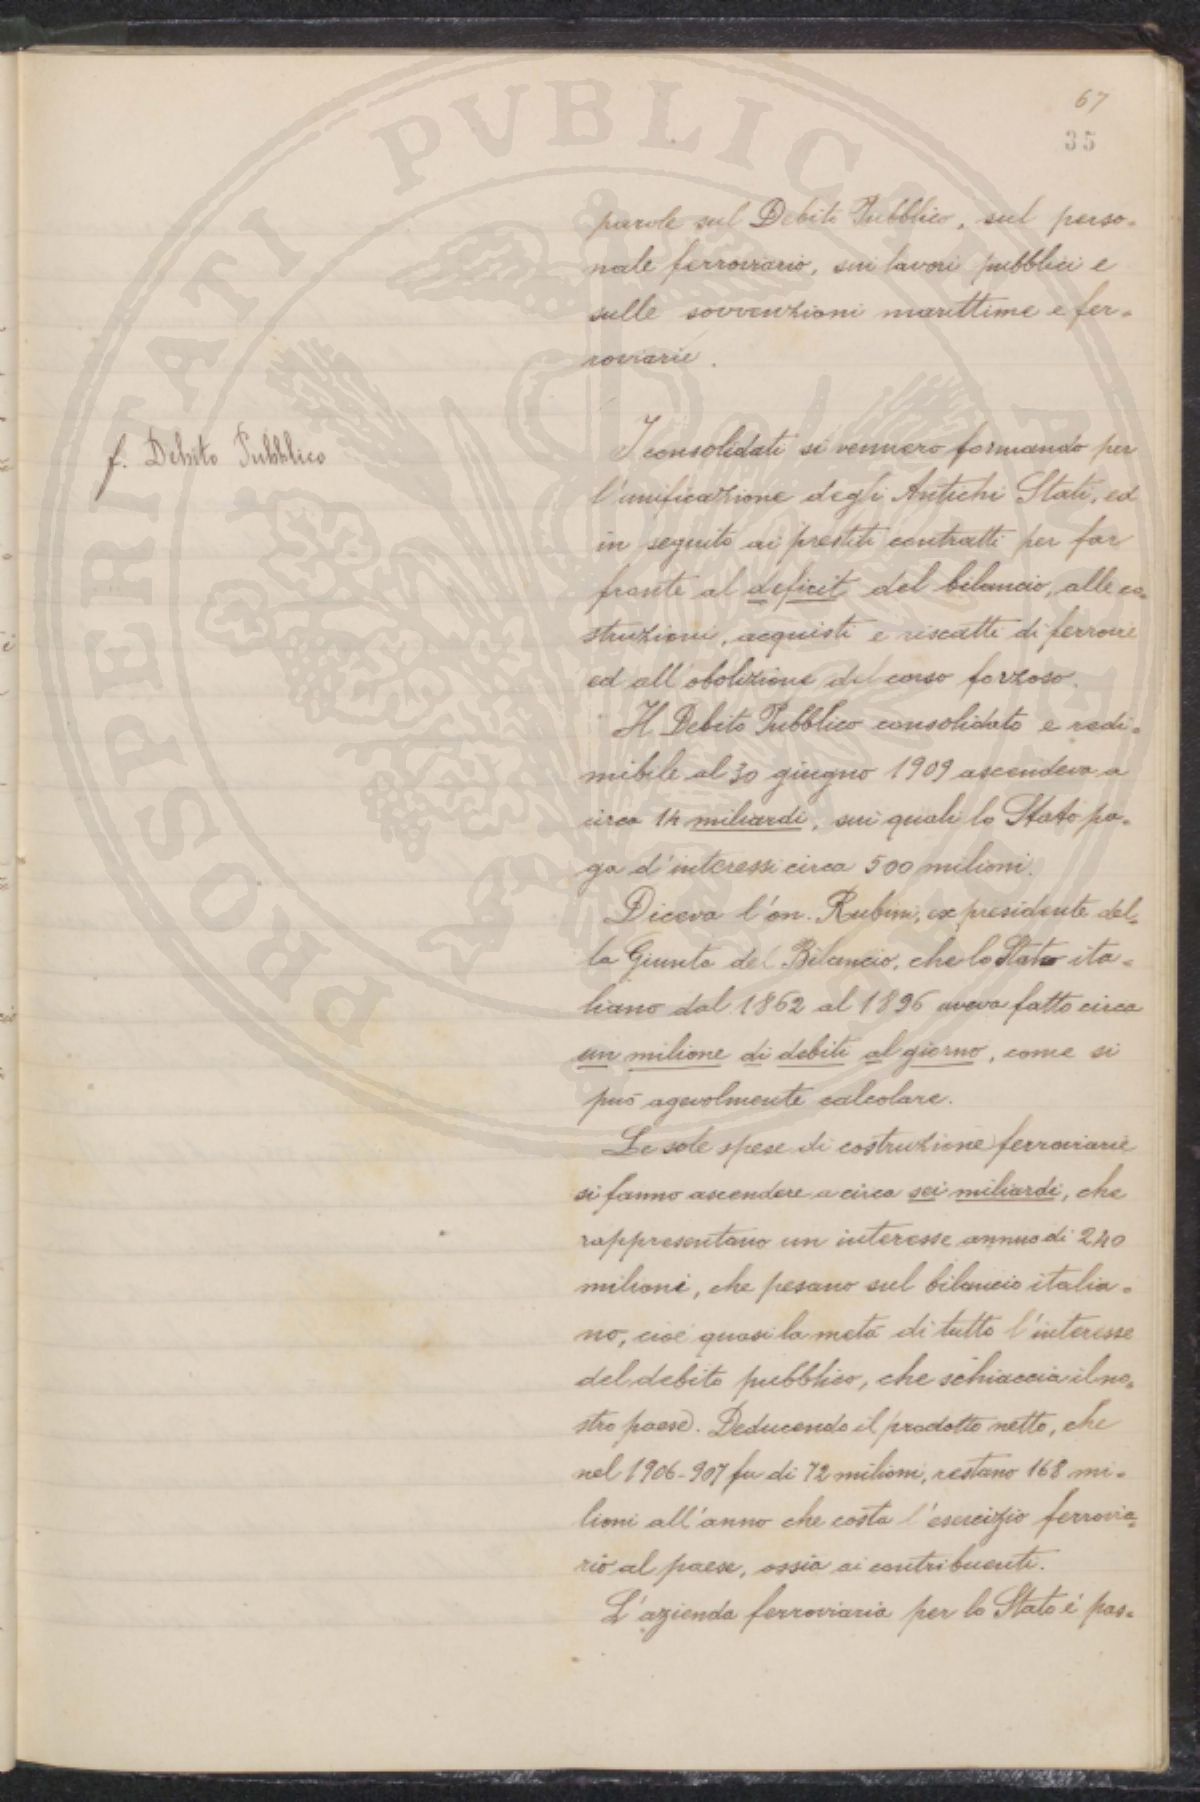 67
35
parole sul Debito Pubblico, sul perso=
nale ferroviario, sui lavori pubblici e
sulle sovvenzioni marittime e fer=
roviarie.
f. Debito Pubblico
I consolidati si vennero formando per
l'unificazione degli Antichi Stati, ed
in seguito ai prestiti contratti per far
fronte al deficit del bilancio, alle co=
struzioni, acquisti e riscatti di ferrovie
ed all'abolizione del corso forzoso.
Il Debito Pubblico consolidato e redi=
mibile al 30 giugno 1909 ascendeva a
circa 14 miliardi, sui quali lo Stato pa=
ga d'interessi circa 500 milioni.
Diceva l'on. Rubini, ex presidente del=
la Giunta del Bilancio, che lo Stato ita=
liano dal 1862 al 1896 aveva fatto circa
un milione di debiti al giorno, come si
può agevolmente calcolare.
Le sole spese di costruzione ferroviarie
si fanno ascendere a circa sei miliardi, che
rappresentano un interesse annuo di 240
milioni, che pesano sul bilancio italia=
no, cioè quasi la metà di tutto l'interesse
del debito pubblico, che schiaccia il no=
stro paese. Deducendo il prodotto netto, che
nel 1906-907 fu di 72 milioni, restano 168 mi=
lioni all'anno che costa l'esercizio ferrovia=
rio al paese, ossia ai contribuenti.
L'azienda ferroviaria per lo Stato è pas=
PROSPERITATI PVBLICAE